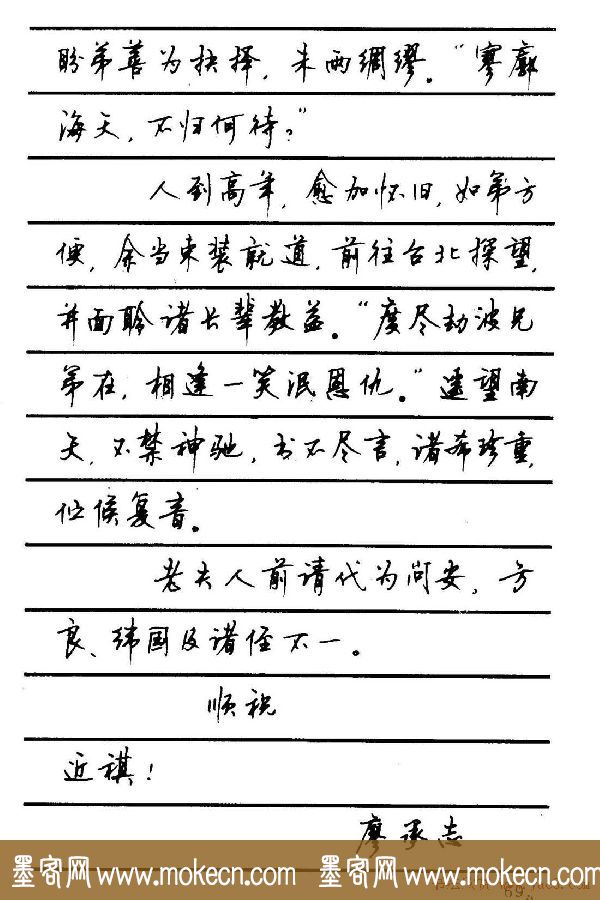 盼弟善为抉择，未雨绸缪。“寥廓
海天，不归何待？”
人到高年，愈加怀旧，如弟方
便，余当束装就道，前往台北探望，
并面聆诸长辈教益。“度尽劫波兄
弟在，相逢一笑泯恩仇。”遥望南
天，不禁神驰，书不尽言，诸希珍重，
伫候复音。
老夫人前请代为问安，方
良、纬国及诸侄不一。
顺祝
近祺！
廖承志
墨客网 www.mokecn.com 墨客网 www.mokecn.com